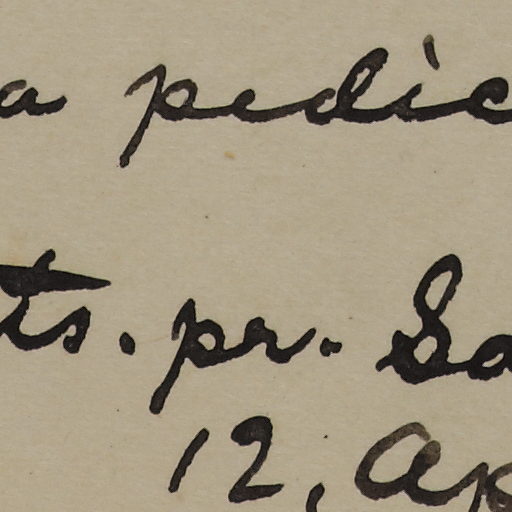 a pedic
ts. pr. Sa
12, Ap